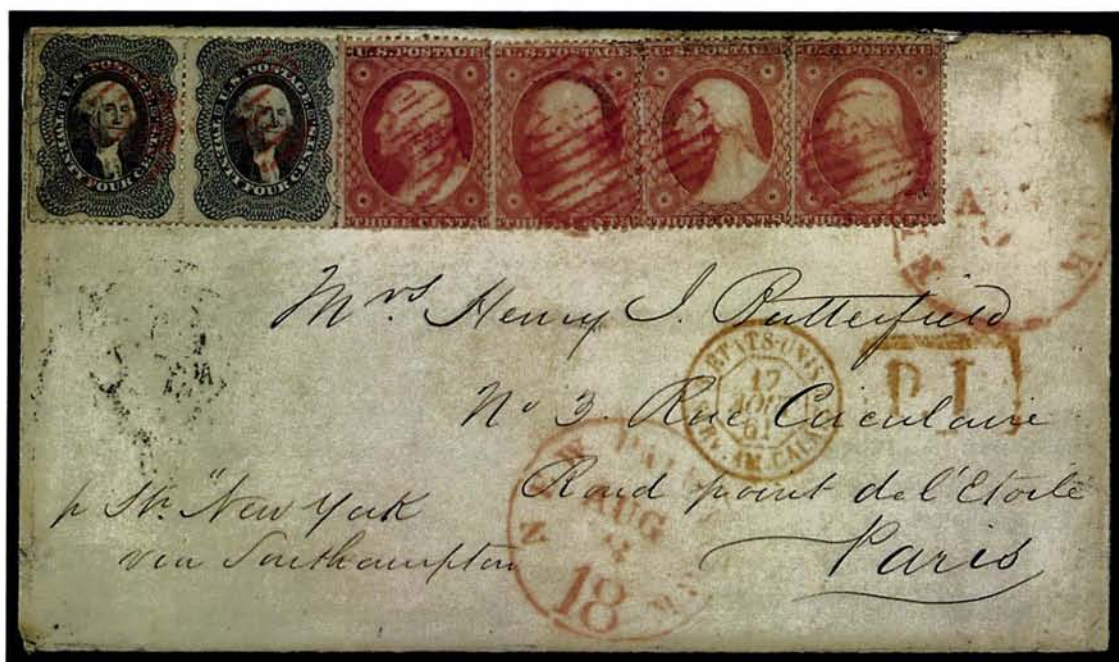 U.S. POSTAGE
TWENTY FOUR CENTS
U.S. POSTAGE
TWENTY FOUR CENTS
U.S. POSTAGE
THREE CENTS
U.S. POSTAGE
THREE CENTS
U.S. POSTAGE
THREE CENTS
U.S. POSTAGE
THREE CENTS
Mrs Henry I. Butterfield
No 3. Rue Circulaire
Rond point de l'Etoile
Paris
p Str. "New York
via Southampton
ETATS-UNIS
17
AOUT
61
SERV. AM. CALAIS
P.D.
PAID
AUG
18